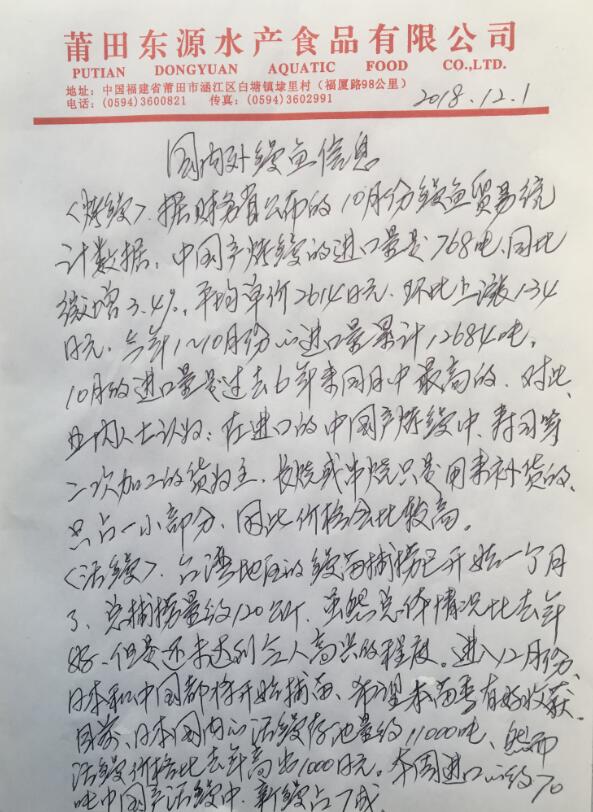 莆田东源水产食品有限公司
PUTIAN DONGYUAN AQUATIC FOOD CO.,LTD.
地址：中国福建省莆田市涵江区白塘镇埭里村（福厦路98公里）
电话：(0594)3600821 传真：(0594)3602991
2018.12.1
国内外鳗鱼信息
〈烤鳗〉. 据财务省公布的10月份鳗鱼贸易统
计数据，中国产烤鳗的进口量是768吨、同比
微增3.4%，平均单价2614日元. 环比上涨134
日元. 今年1~10月份的进口量累计12684吨。
10月的进口量是过去6年来同月中最高的. 对此、
业内人士认为：在进口的中国产烤鳗中、寿司等
二次加工的货为主、长烧或串烧只是用来补货的、
只占一小部分、因此价格会比较高。
〈活鳗〉. 台湾地区的鳗苗捕捞已开始一个月
了、总捕捞量约120公斤、虽然总体情况比去年
好、但是还未达到令人高兴的程度。进入12月份、
日本和中国都将开始捕苗、希望本苗季有好收获.
目前、日本国内的活鳗存池量约11000吨、然而
活鳗价格比去年高出1000日元。本周进口的约70
吨中国产活鳗中、新鳗占7成.